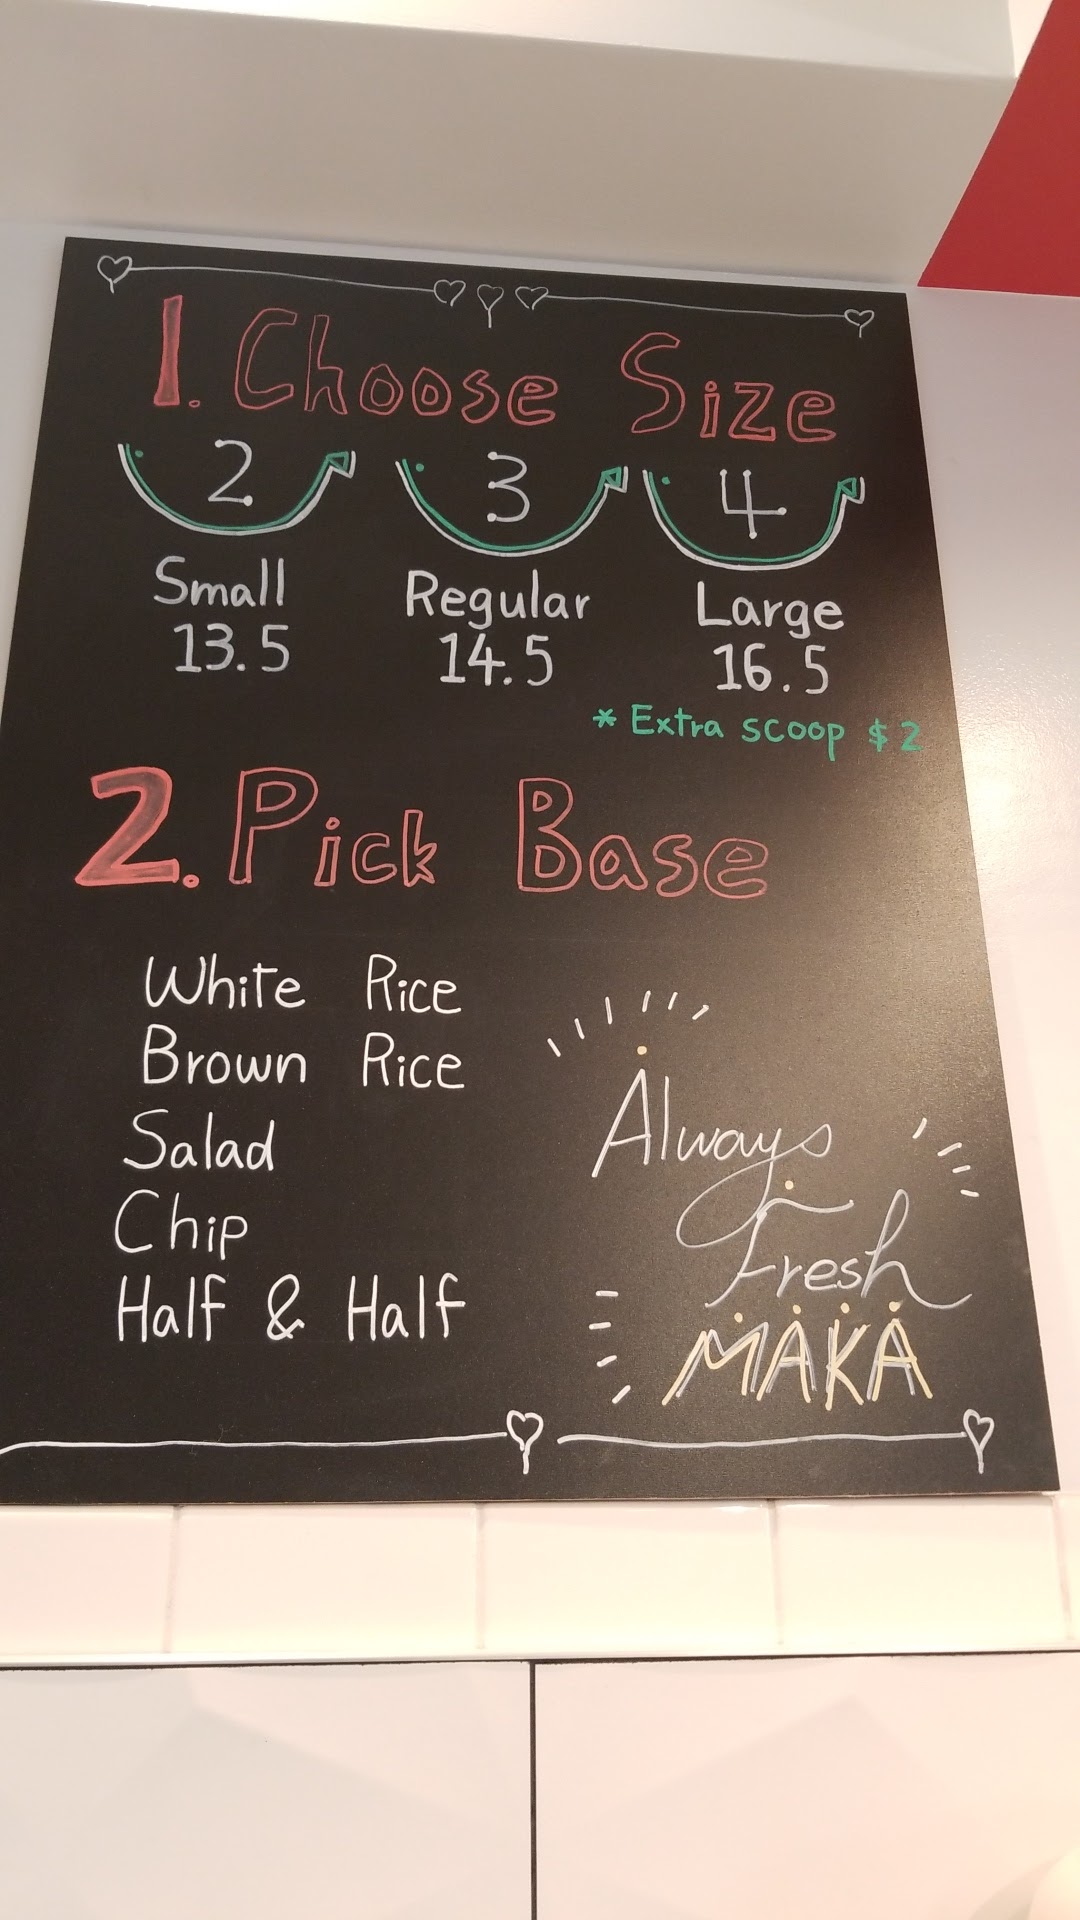 1. Choose Size
2 3 4
Small Regular Large
13.5 14.5 16.5
* Extra scoop $2
2. Pick Base
White Rice
Brown Rice
Salad
Chip
Half & Half
Always
Fresh
MAKA